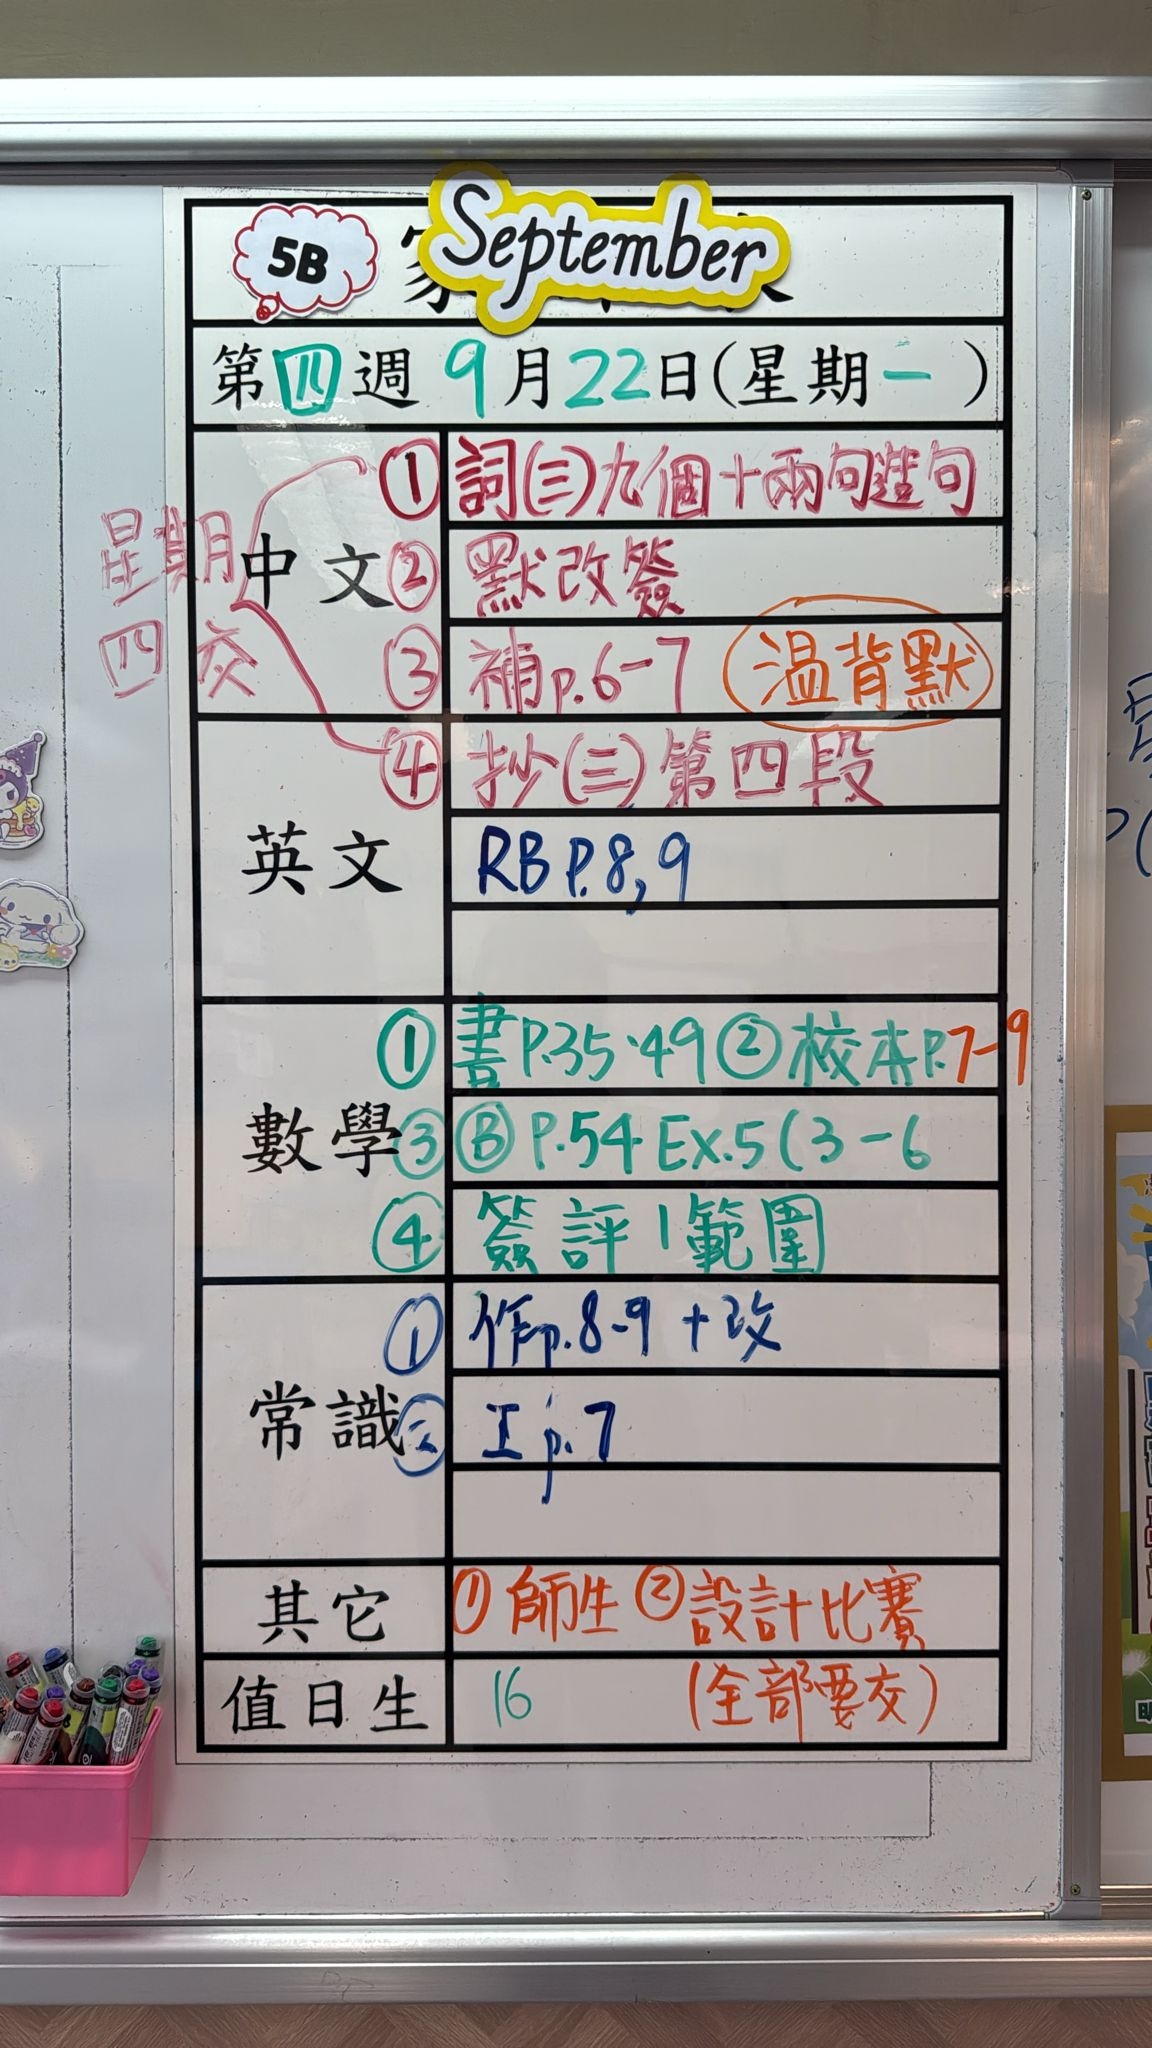 5B
September
第四週 9月22日(星期一 )
星期四交
中文
① 詞(三)九個十兩句造句
② 默改簽
③ 補p.6-7 溫背默
④ 抄(三)第四段
英文
RB P.8,9
數學
① 書P.35.49 ② 校本P.7-9
③ Ⓑ P.54 Ex.5(3-6
④ 簽評1範圍
常識
① 作p.8-9 +改
② 工p.7
其它
① 師生 ② 設計比賽
值日生
16 (全部要交)